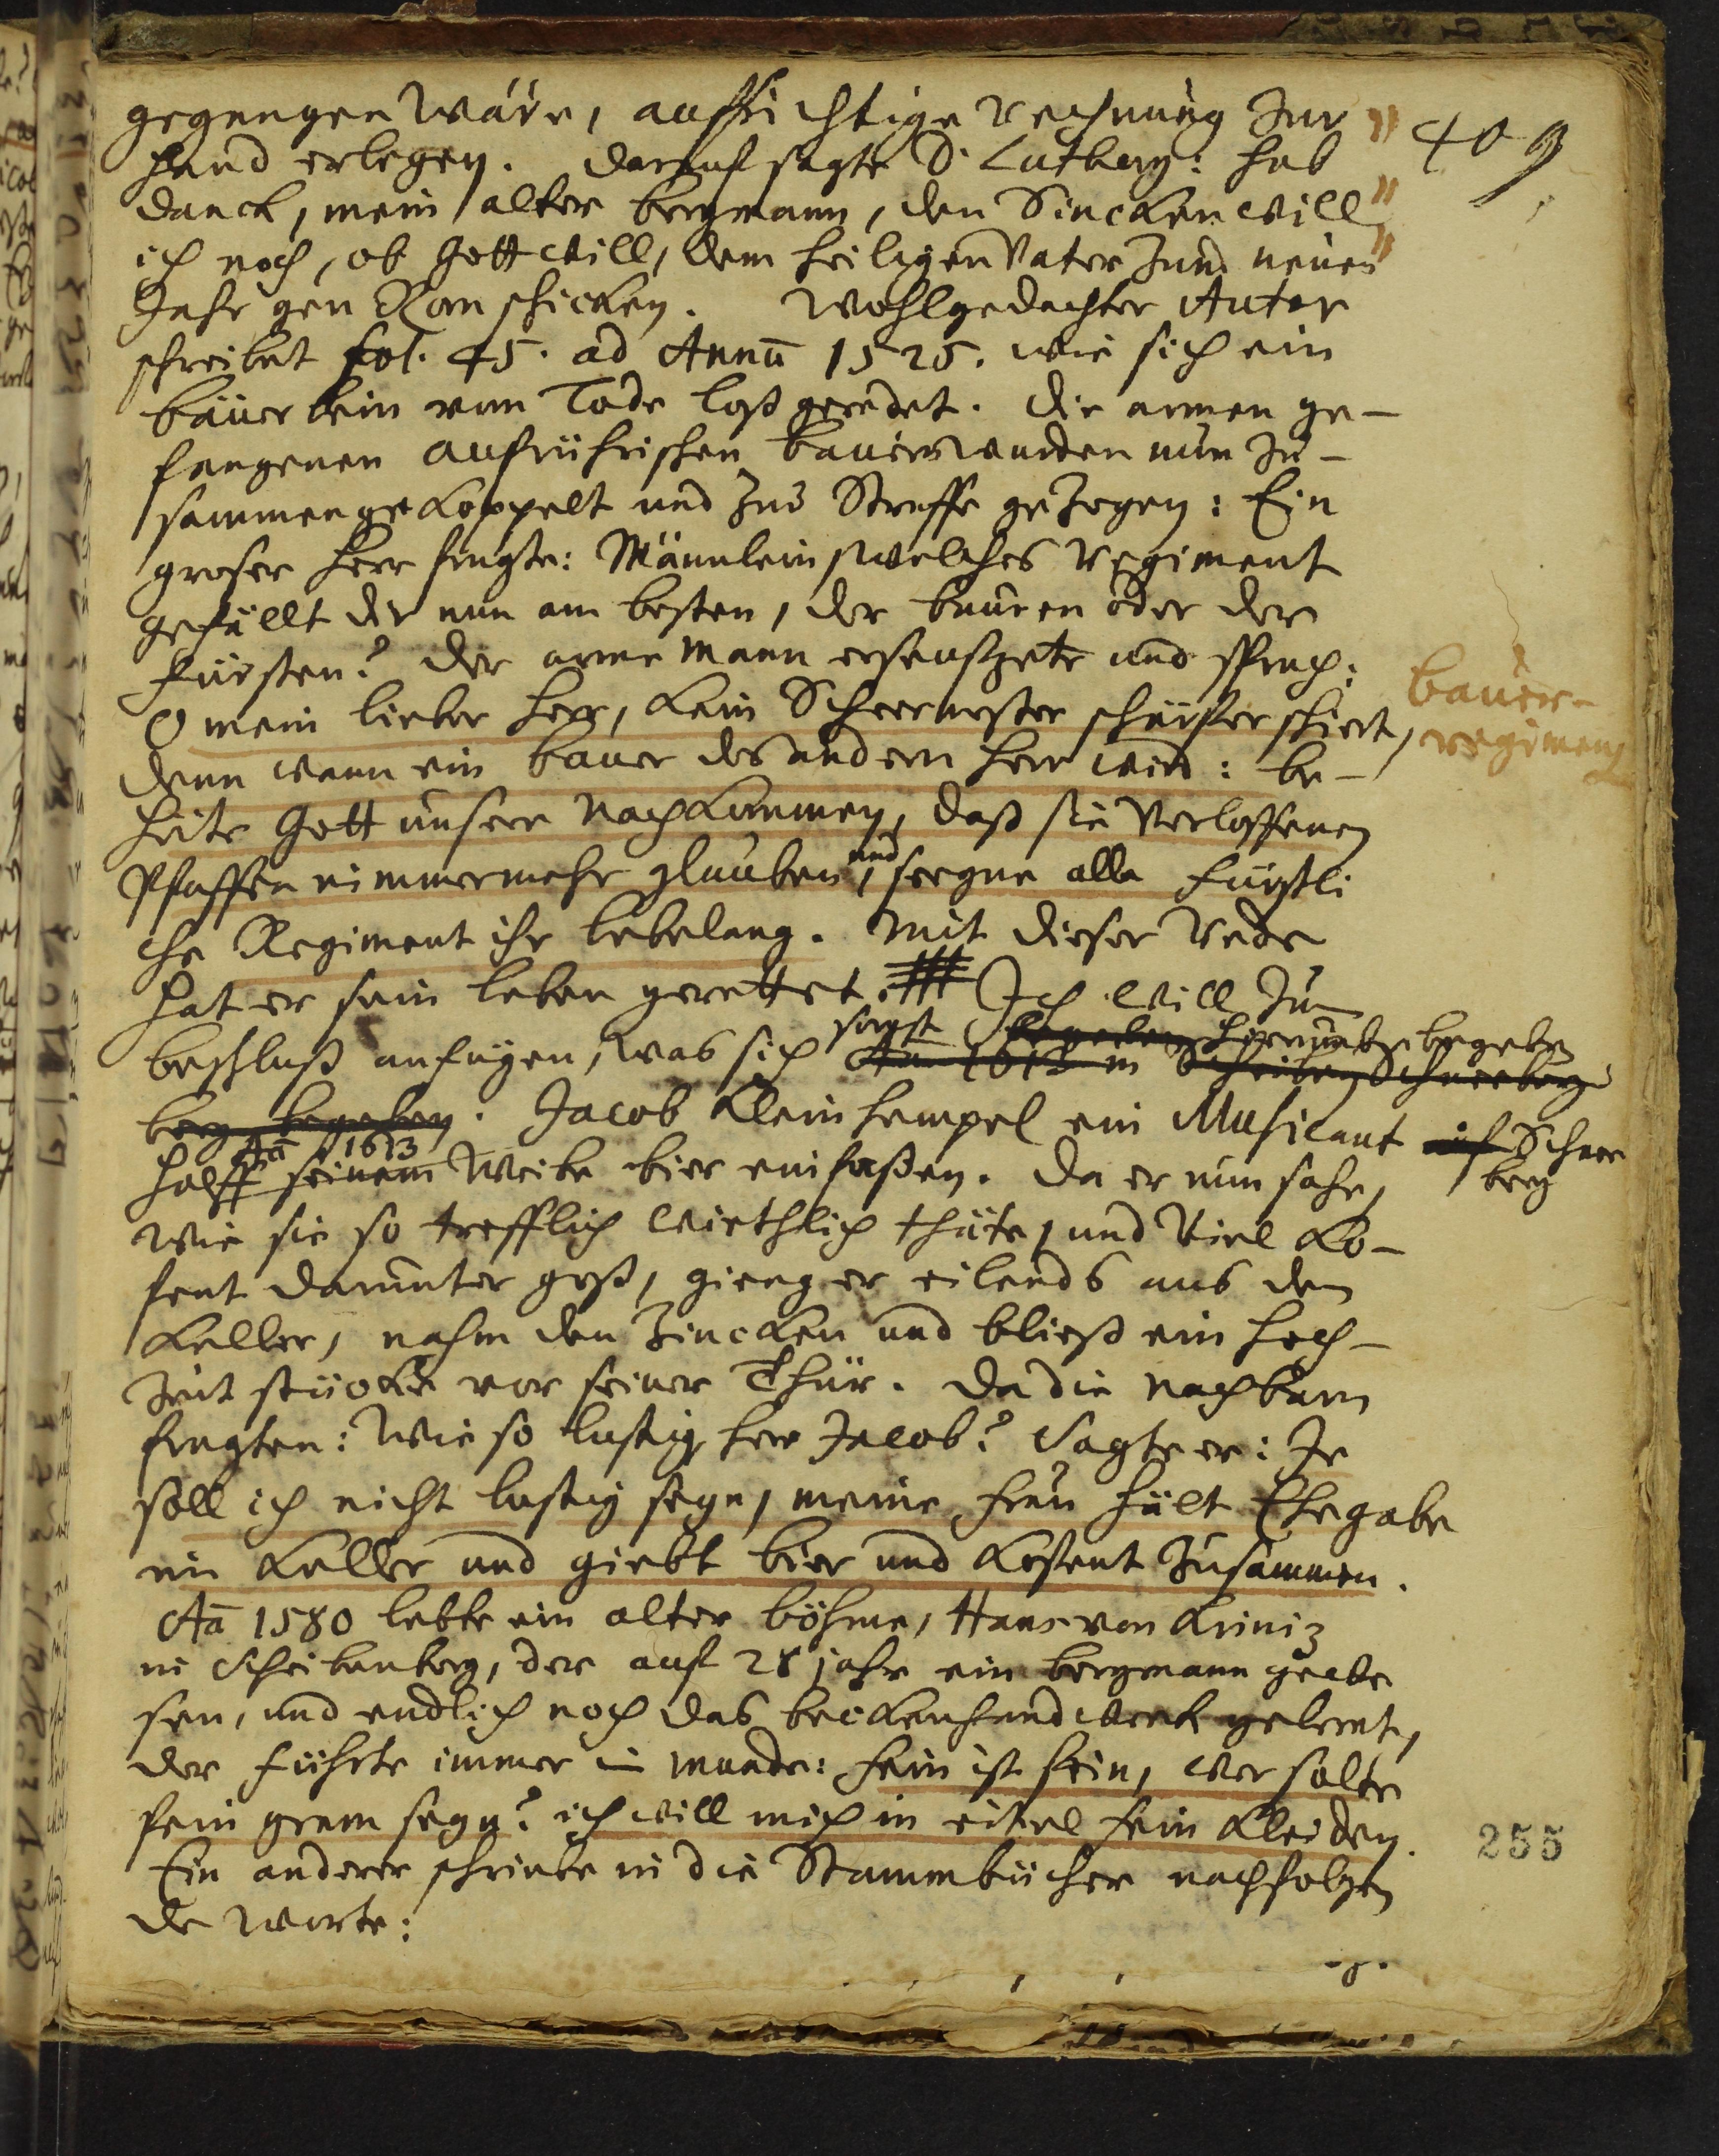 gegangen wäre, auffrichtige Rechnung zur
409
hand erlegen. Darauf sagte D. Luther: hab
danck, mein alter bergmann, den Sincken will
ich noch, ob Gott will, dem heiligen Vater zum neuen
Jahr gen Rom schicken. Wohlgedachter Autor
schreibet fol. 45. ad Annū 1525. wie sich ein
bäuerlein vom Tode loß geredet. Die armen ge-
fangenen aufrührischen bauern wurden nun zu-
sammen gekoppelt und zur Straffe gezogen: Ein
groser herr fragte: Männlein, welches Regiment
gefällt dir nun am besten, der bauren oder der
fürsten? Der arme Mann erseufzete und sprach:
O mein lieber herr, kein Scheermesser schärfer schiert,
bauer-
regiment
denn wann ein bauer des andern herr wird: be-
hüte Gott unsere nachkommen, daß sie verloffenen
Pfaffen nimmermehr glauben, und seegne alle fürstli
che Regiment ihr lebelang. Mit dieser Rede
hat er sein leben gerettet. Ich will zu
beschluß anfügen, was sich sonst hierum begeben
Aō 1612 in Scheibenb Schneeberg
berg begeben. Jacob Kleinhempel ein Musicant auf Schnee
berg
halff Aō 1613 seinem Weibe bier einfaßen. Da er nun sahe,
wie sie so trefflich wirthlich thäte, und viel Ko-
fent darunter goß, gieng er eilends aus dem
Keller, nahm den Zincken und bließ ein hoch-
zeit stücke vor seiner Thür. Da die nachbarn
fragten: Wie so lustig herr Jacob? Sagte er: Je
soll ich nicht lustig seyn, meine frau hält Ehegabe
im Keller und giebt bier und Kofent zusammen.
Aō 1580 lebte ein alter böhme, Hans von Kriniz
in Scheibenberg, der auf 28 jahr ein bergmann gewe
sen, und endlich noch das beckenhandwerk gelernt,
der führte immer im munde: fein ist fein, wer solte
fein gram seyn? ich will mich in eitel fein kleiden.
255
Ein anderer schriebe in die Stammbücher nachfolgen
de Worte: